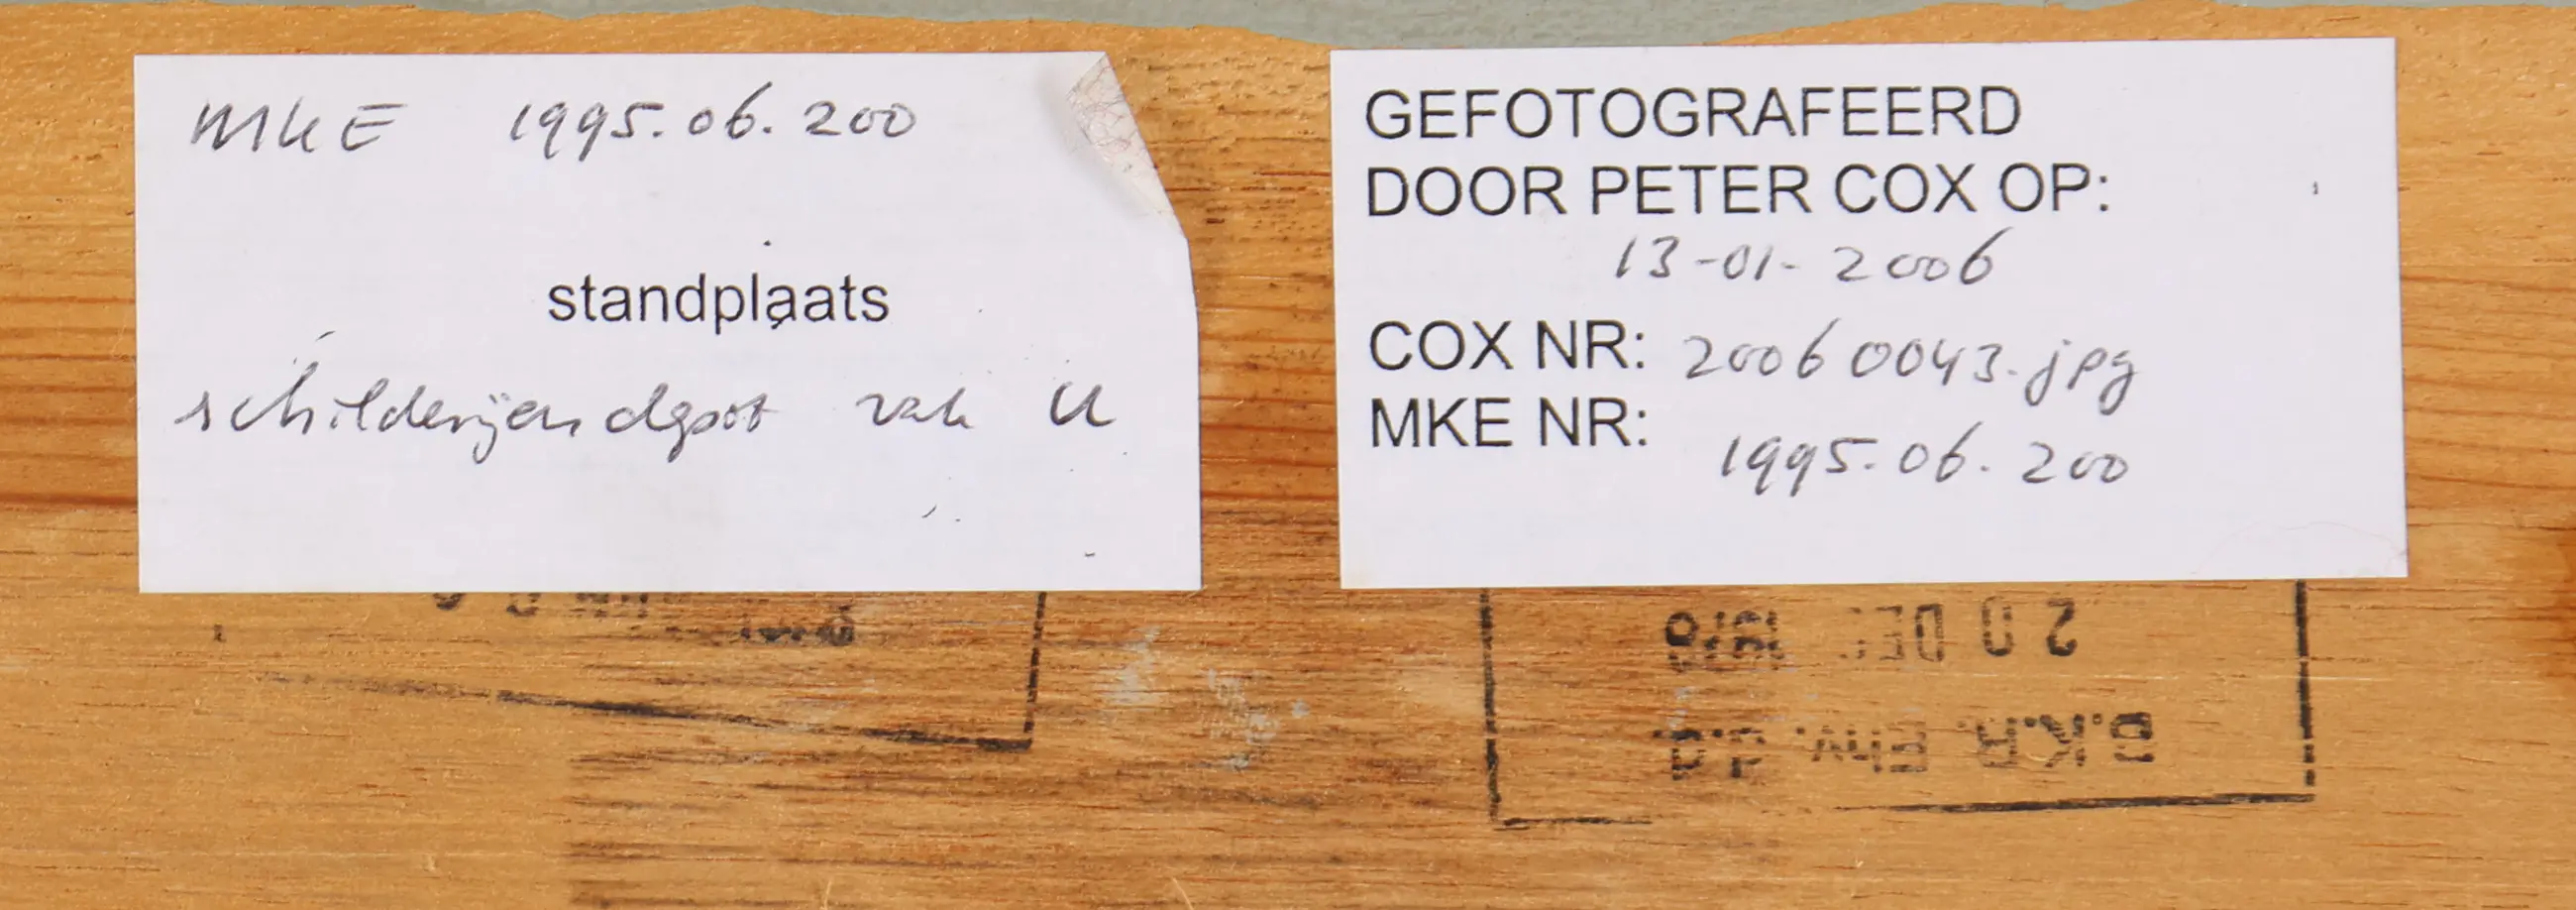 MKE 1995.06.200
standplaats
schilderijendepot vak U
GEFOTOGRAFEERD
DOOR PETER COX OP:
13-01-2006
COX NR: 20060043.jpg
MKE NR:
1995.06.200
20 DEC
B.K.R.